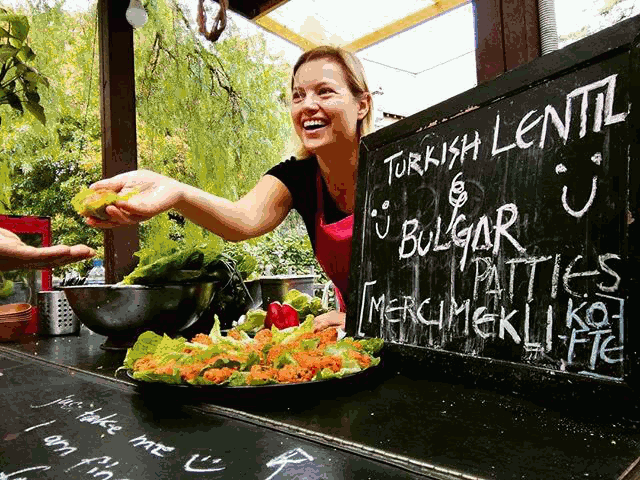 TURKISH LENTIL
&
BULGAR
PATTIES
[MERCIMEKLI KÖFTE]
just take me
I am fin